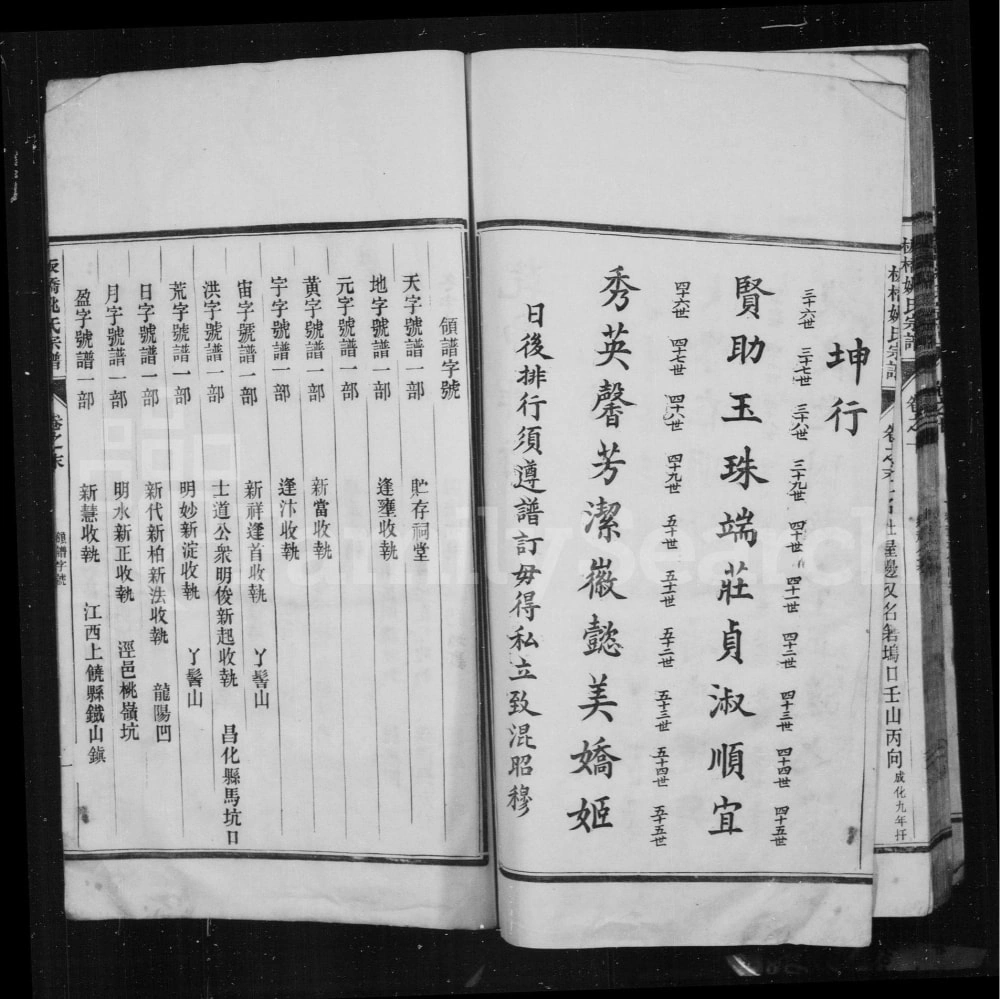 坤行
三十六世 三十七世 三十八世 三十九世 四十世 四十一世 四十二世 四十三世 四十四世 四十五世
賢助玉珠端莊貞淑順宜
四十六世 四十七世 四十八世 四十九世 五十世 五十一世 五十二世 五十三世 五十四世 五十五世
秀英馨芳潔徽懿美嬌姬
日後排行須遵譜訂毋得私立致混昭穆
領譜字號
天字號譜一部 貯存祠堂
地字號譜一部 逢壅收執
元字號譜一部
黃字號譜一部 新當收執
宇字號譜一部 逢汴收執
宙字號譜一部 新祥逢首收執 丫髻山
洪字號譜一部 士道公衆明俊新起收執 昌化縣馬坑口
荒字號譜一部 明妙新淀收執 丫髻山
日字號譜一部 新代新柏新法收執 龍陽凹
月字號譜一部 明水新正收執 涇邑桃嶺坑
盈字號譜一部 新慧收執 江西上饒縣鐵山鎮
姚氏宗譜 卷之末 領譜字號
屋邊又名 塢口壬山丙向 成化九年扦
FamilySearch